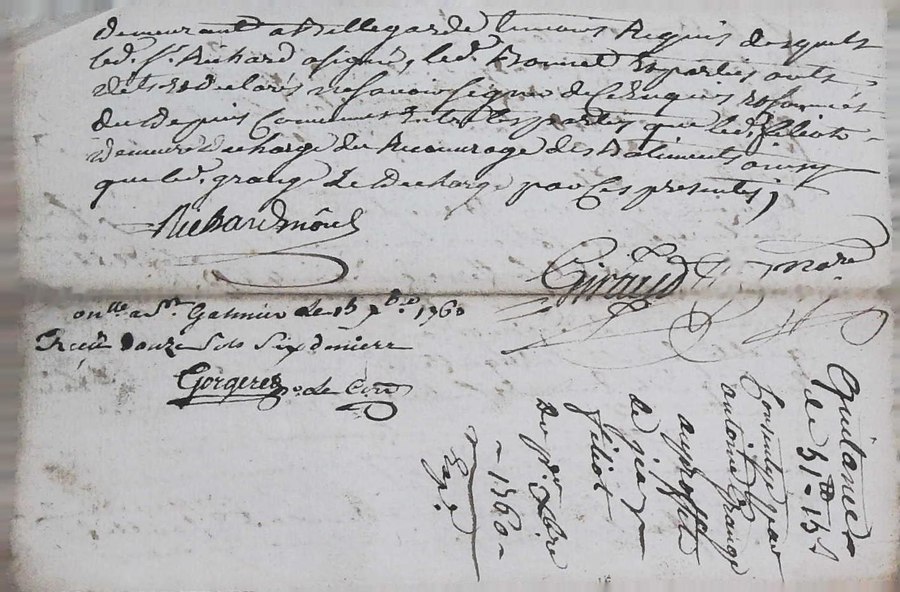 demeurant a Bellegarde temoins Requis desquels
led. Sr. Richard a signé, led. et parties ont
dit et declarés ne savoir signer de ce Enquis et sommés
du depuis Convenu Entre les parties que led. filiot
demeure decharge du Recouvrage des Batiments ainsy
que led. grange Le decharge par Ces presentes,
Richard
Giraud Nore
onlle a St. Galmier le 15 xbre 1760
Receu douze Sols Six deniers
Gorgeret
Quitance
de 31ll 15s
Consentye par
antoine Grange
au proffit
de jean
filiot
du pr. Xbre
1760
Exp.